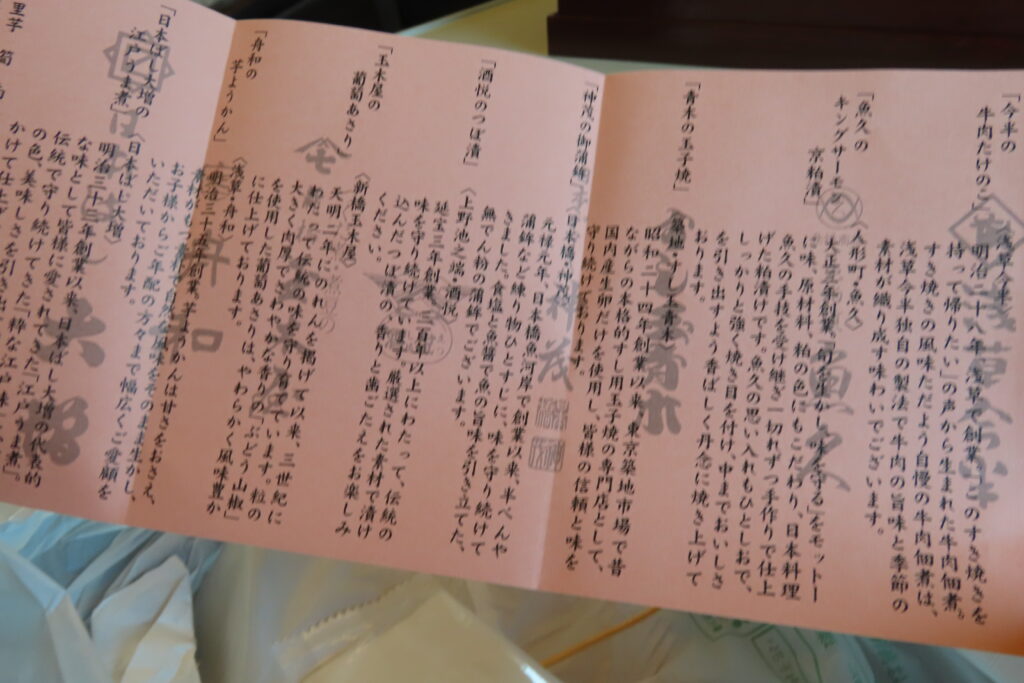 「今半の
牛肉たけのこ」
〈浅草今半〉
明治二十八年、浅草で創業。「今半のすき焼きを
持って帰りたい」の声から生まれた牛肉佃煮。
すき焼きの風味ただよう自慢の牛肉佃煮は、
浅草今半独自の製法で牛肉の旨味と季節の
素材が織り成す味わいでございます。
「魚久の
キングサーモン
京粕漬」
〈人形町・魚久〉
大正三年創業。「旬を生かし味を守る」をモットー
に味、原材料、粕の色にもこだわり、日本料理
魚久の手技を受け継ぎ一切れずつ手作りで仕上
げた粕漬けです。魚久の思い入れもひとしおで、
しっかりと強く焼き目を付け、中までおいしさ
を引き出すよう香ばしく丹念に焼き上げて
おります。
「青木の玉子焼」
〈築地・すし玉青木〉
昭和二十四年創業以来、東京築地市場で昔
ながらの本格的すし用玉子焼の専門店として、
国内産生卵だけを使用し、皆様の信頼と味を
守り続けております。
「神茂の御蒲鉾」
〈日本橋・神茂〉
元禄元年、日本橋魚河岸で創業以来、半ぺんや
蒲鉾など練り物ひとすじに、味を守り続けて
きました。食塩と魚醤で魚の旨味を引き立てた、
無でん粉の蒲鉾でございます。
「酒悦のつぼ漬」
〈上野池之端・酒悦〉
延宝三年創業、三百年以上にわたって、伝統の
味を守り続けています。厳選された素材で漬け
込んだつぼ漬の香りと歯ごたえをお楽しみ
ください。
「玉木屋の
葡萄あさり」
〈新橋玉木屋〉
天明二年にのれんを掲げて以来、三世紀に
わたって伝統の味を守り育てています。粒の
大きく肉厚で、さわやかな香りの「ぶどう山椒」
を使用した葡萄あさりは、やわらかく風味豊か
に仕上げております。
「舟和の
芋ようかん」
〈浅草・舟和〉
明治三十五年創業。芋ようかんは甘さをおさえ、
素材が持つ自然な風味をそのまま生かし、
お子様からご年配の方々まで幅広くご愛顧を
いただいております。
「日本ばし大増の
江戸うま煮」
〈日本ばし大増〉
明治三十三年創業以来、日本ばし大増の代表的
な味として皆様に愛されてきた「江戸うま煮」。
伝統で守り続けてきた「粋な江戸味」
の色、美味しさを引き出
かけて仕上げ
里芋 筍